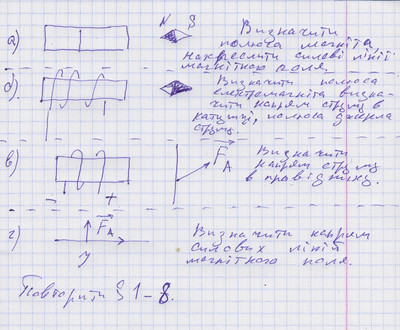 а)
N S
Визначити
полюса магніта,
накреслити силові лінії
магнітного поля.
б)
Визначити полюса
електромагніта визна-
чити напрям струму в
катушці, полюса джерела
струму.
в)
- +
F А
Визначити
напрям струму
в провіднику.
г)
F А
У
Визначити напрям
силових ліній
магнітного поля.
Повторити § 1-8.